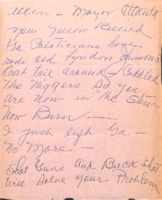 Allen - Mayor Atlanta
You Yellow Bellied
Ga Politicians have
rode old Lyndon Johnsons
Coat Tail around & Coddled
The Niggers So you
are now in the Stew
Now Burn —
I just left Ga —
No More —
Shot Guns and Buck Shot
will solve your Problem